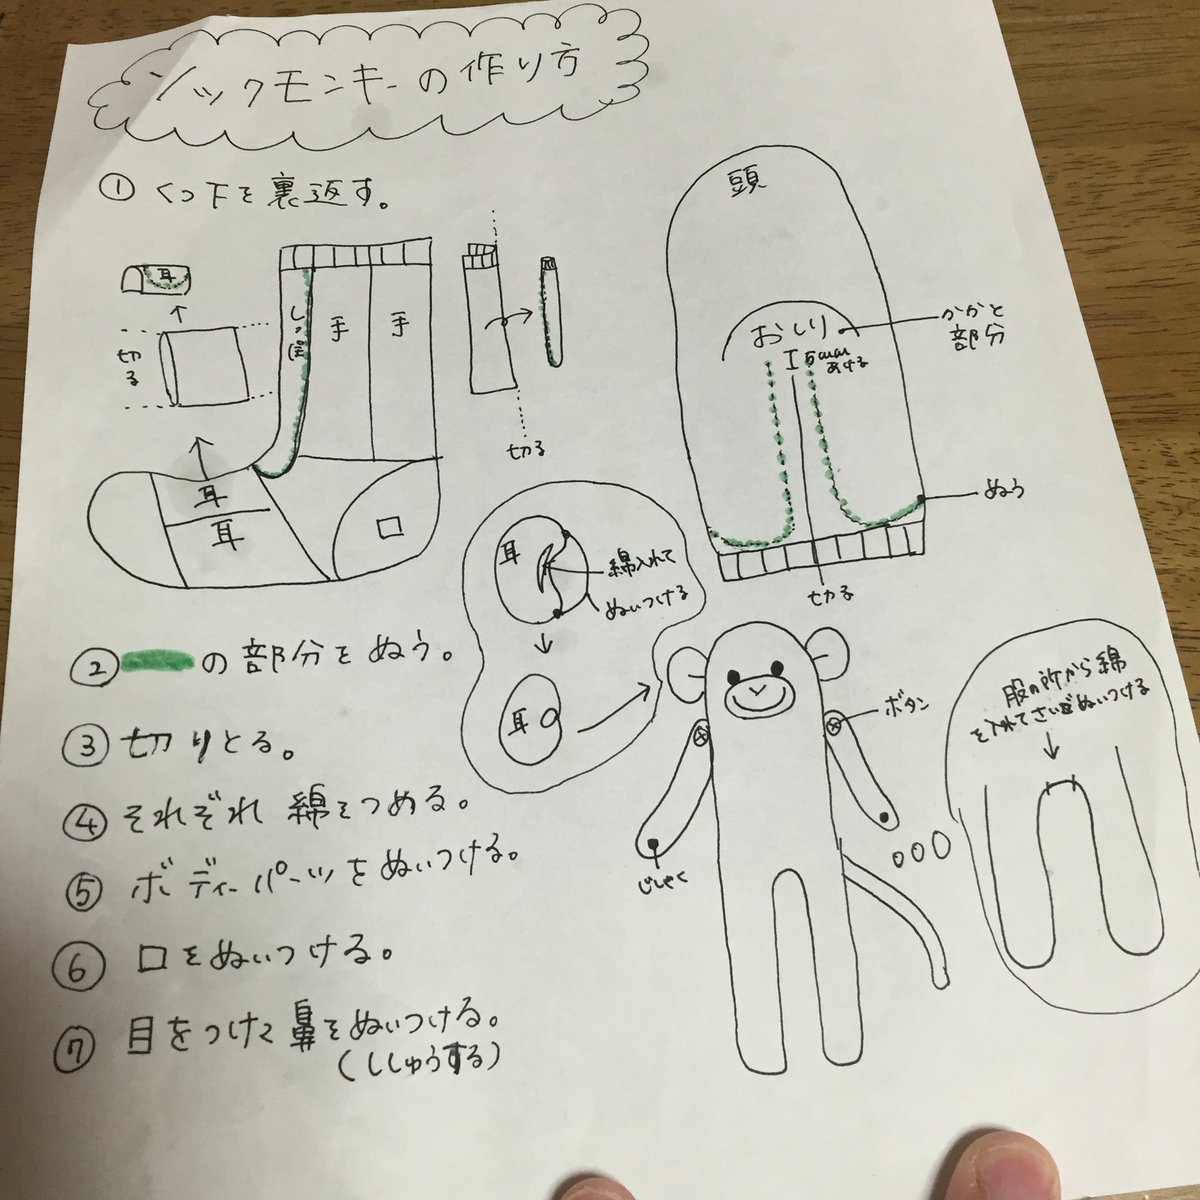 ソックモンキーの作り方
①くつ下を裏返す。
耳
切る
しっ尾
手
手
耳
耳
口
切る
頭
おしり
5mm
あける
かかと
部分
ぬう
切る
耳
綿入れて
ぬいつける
耳
②の部分をぬう。
③切りとる。
④それぞれ綿をつめる。
⑤ボディーパーツをぬいつける。
⑥口をぬいつける。
⑦目をつけて鼻をぬいつける。
(ししゅうする)
ボタン
じしゃく
股の所から綿
を入れてさいごぬいつける